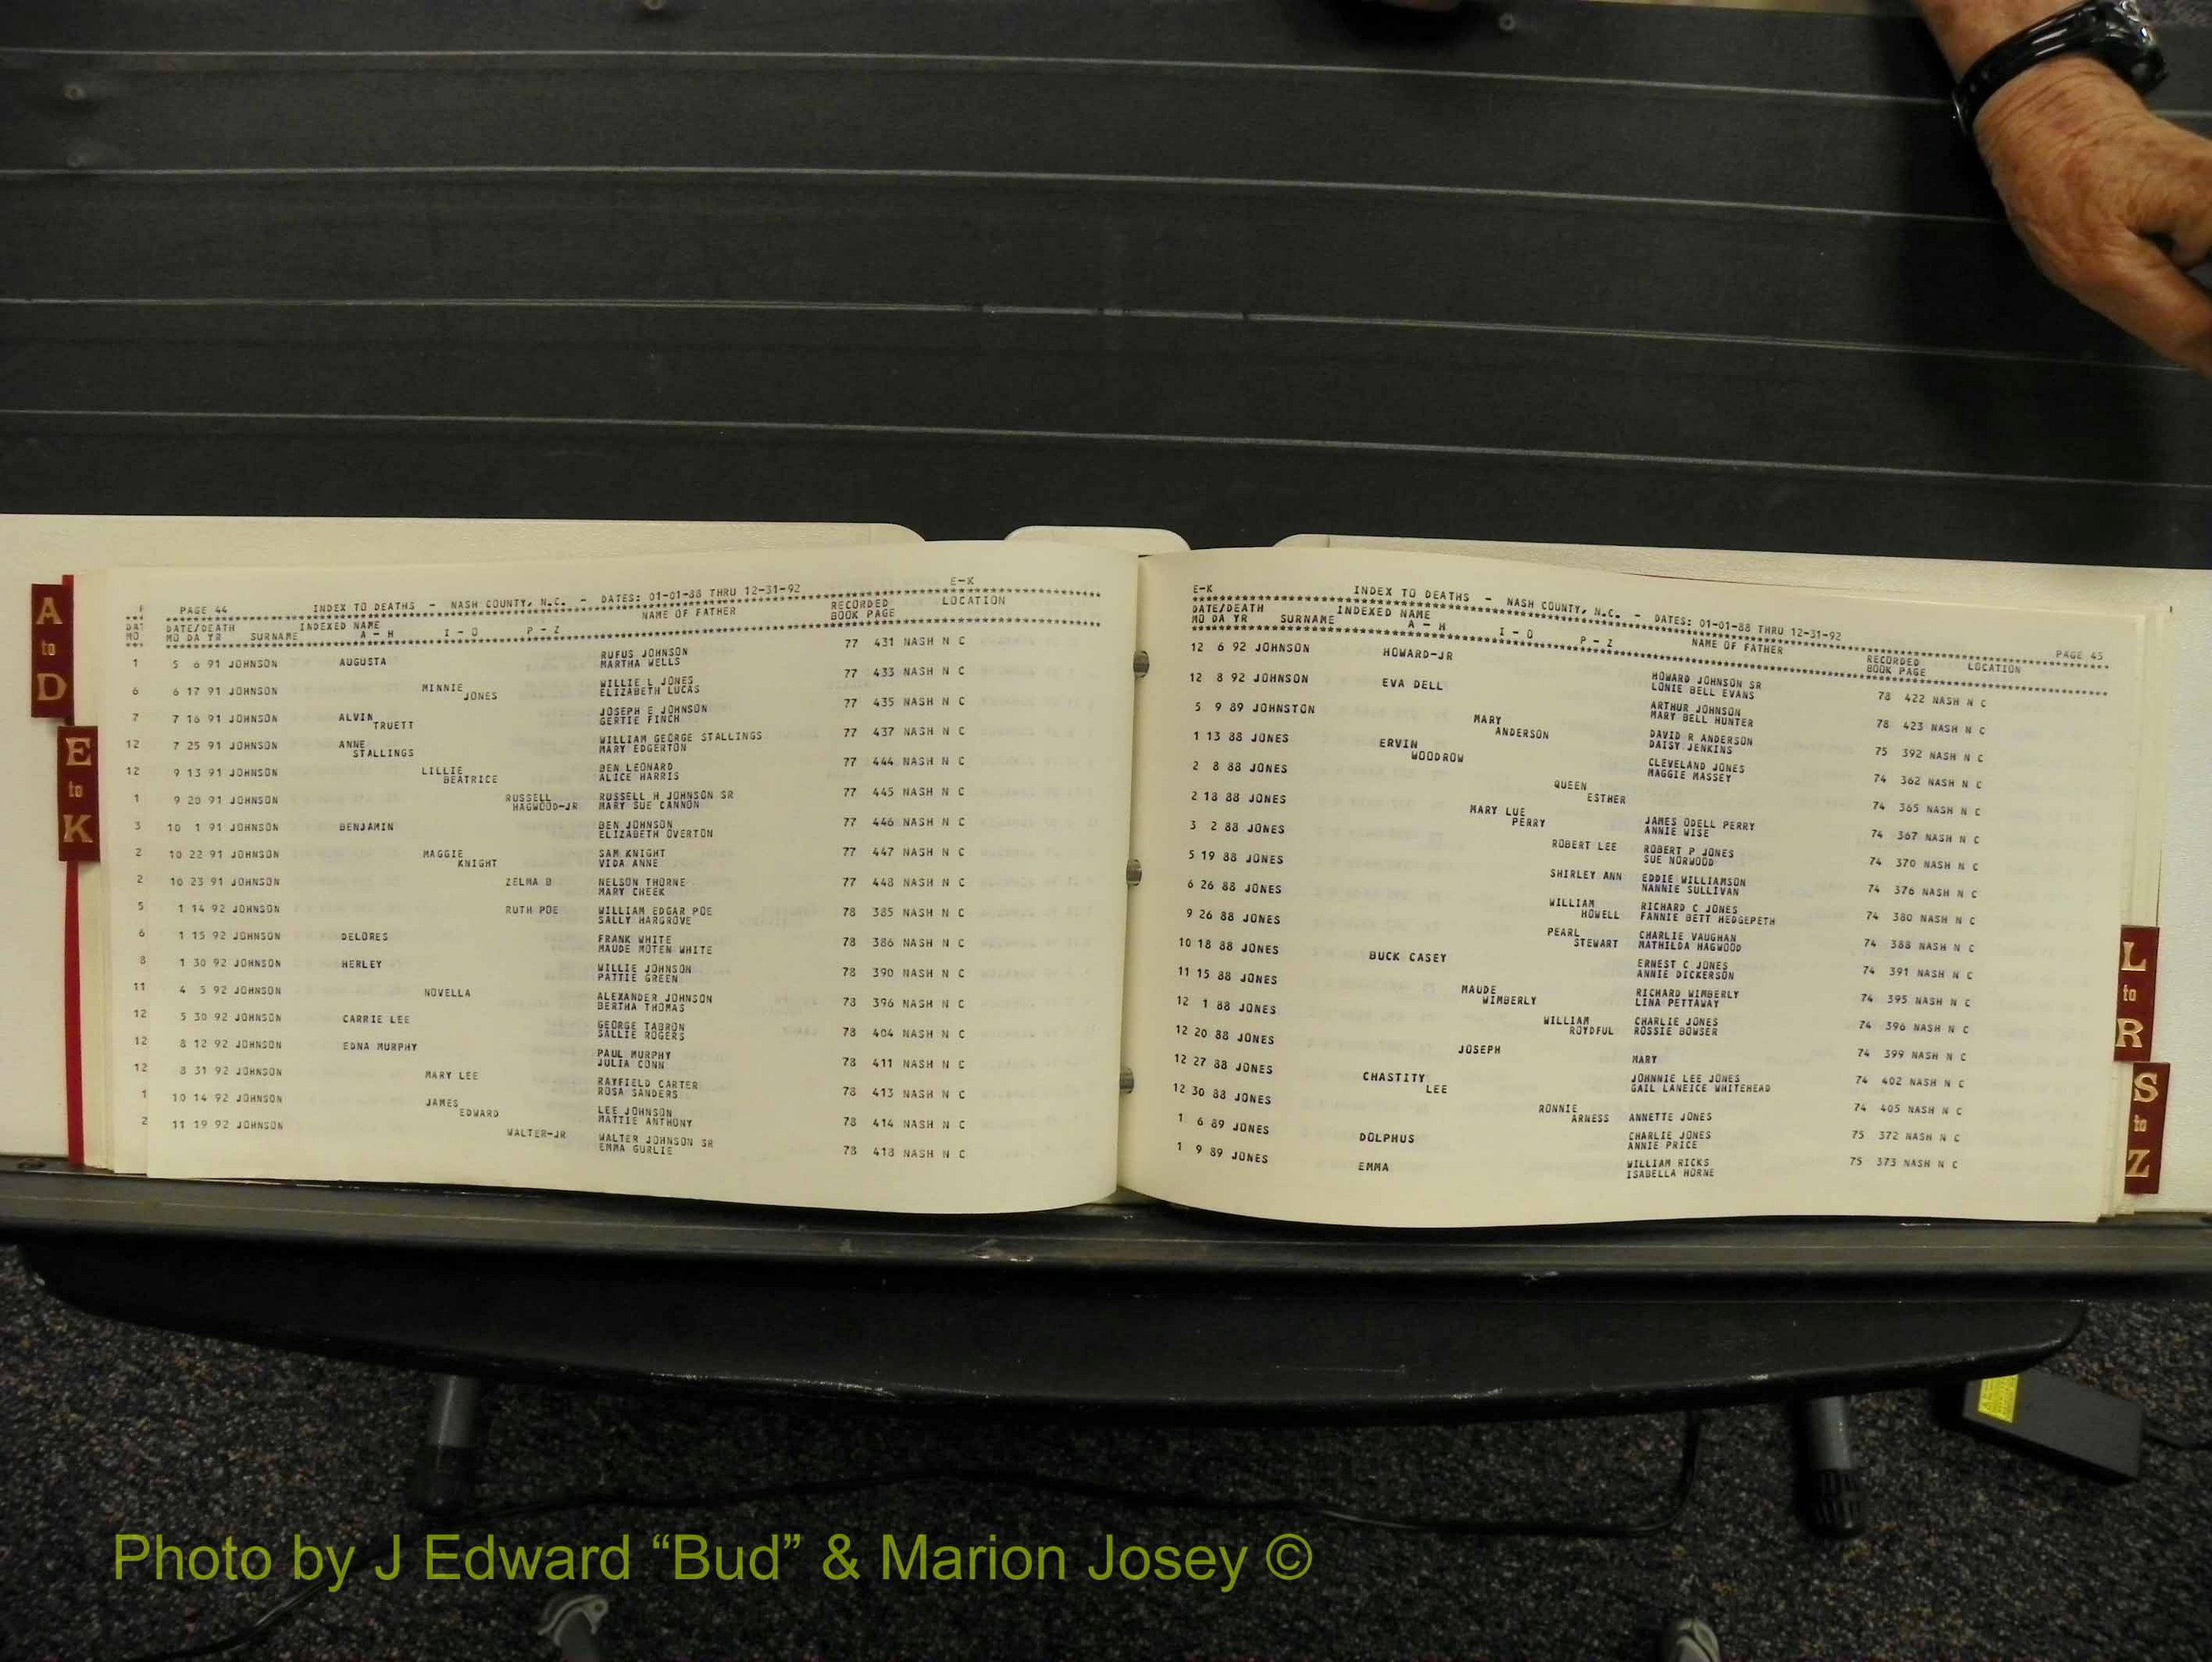 A
to
D
E
to
K
PAGE 44 INDEX TO DEATHS - NASH COUNTY, N.C. - DATES: 01-01-88 THRU 12-31-92 E-K
DATE/DEATH INDEXED NAME NAME OF FATHER RECORDED LOCATION
MO DA YR SURNAME A - H I - O P - Z BOOK PAGE
5 6 91 JOHNSON AUGUSTA RUFUS JOHNSON 77 431 NASH N C
MARTHA WELLS
6 17 91 JOHNSON MINNIE WILLIE L JONES 77 433 NASH N C
JONES ELIZABETH LUCAS
7 16 91 JOHNSON ALVIN JOSEPH E JOHNSON 77 435 NASH N C
TRUETT GERTIE FINCH
7 25 91 JOHNSON ANNE WILLIAM GEORGE STALLINGS 77 437 NASH N C
STALLINGS MARY EDGERTON
9 13 91 JOHNSON LILLIE BEN LEONARD 77 444 NASH N C
BEATRICE ALICE HARRIS
9 20 91 JOHNSON RUSSELL RUSSELL H JOHNSON SR 77 445 NASH N C
HAGWOOD-JR MARY SUE CANNON
10 1 91 JOHNSON BENJAMIN BEN JOHNSON 77 446 NASH N C
ELIZABETH OVERTON
10 22 91 JOHNSON MAGGIE SAM KNIGHT 77 447 NASH N C
KNIGHT VIDA ANNE
10 23 91 JOHNSON ZELMA B NELSON THORNE 77 448 NASH N C
MARY CHEEK
1 14 92 JOHNSON RUTH POE WILLIAM EDGAR POE 78 385 NASH N C
SALLY HARGROVE
1 15 92 JOHNSON DELORES FRANK WHITE 78 386 NASH N C
MAUDE MOTEN WHITE
1 30 92 JOHNSON HERLEY WILLIE JOHNSON 78 390 NASH N C
PATTIE GREEN
4 5 92 JOHNSON NOVELLA ALEXANDER JOHNSON 78 396 NASH N C
BERTHA THOMAS
5 30 92 JOHNSON CARRIE LEE GEORGE TABRON 78 404 NASH N C
SALLIE ROGERS
8 12 92 JOHNSON EDNA MURPHY PAUL MURPHY 78 411 NASH N C
JULIA CONN
8 31 92 JOHNSON MARY LEE RAYFIELD CARTER 78 413 NASH N C
ROSA SANDERS
10 14 92 JOHNSON JAMES LEE JOHNSON 78 414 NASH N C
EDWARD MATTIE ANTHONY
11 19 92 JOHNSON WALTER-JR WALTER JOHNSON SR 78 418 NASH N C
EMMA GURLIE
E-K INDEX TO DEATHS - NASH COUNTY, N.C. - DATES: 01-01-88 THRU 12-31-92 PAGE 45
DATE/DEATH INDEXED NAME NAME OF FATHER RECORDED LOCATION
MO DA YR SURNAME A - H I - O P - Z BOOK PAGE
12 6 92 JOHNSON HOWARD-JR HOWARD JOHNSON SR 78 422 NASH N C
LONIE BELL EVANS
12 8 92 JOHNSON EVA DELL ARTHUR JOHNSON 78 423 NASH N C
MARY BELL HUNTER
5 9 89 JOHNSTON MARY DAVID R ANDERSON 75 392 NASH N C
ANDERSON DAISY JENKINS
1 13 88 JONES ERVIN CLEVELAND JONES 74 362 NASH N C
WOODROW MAGGIE MASSEY
2 8 88 JONES QUEEN 74 365 NASH N C
ESTHER
2 18 88 JONES MARY LUE JAMES ODELL PERRY 74 367 NASH N C
PERRY ANNIE WISE
3 2 88 JONES ROBERT LEE ROBERT P JONES 74 370 NASH N C
SUE NORWOOD
5 19 88 JONES SHIRLEY ANN EDDIE WILLIAMSON 74 376 NASH N C
NANNIE SULLIVAN
6 26 88 JONES WILLIAM RICHARD C JONES 74 380 NASH N C
HOWELL FANNIE BETT HEDGEPETH
9 26 88 JONES PEARL CHARLIE VAUGHAN 74 388 NASH N C
STEWART MATHILDA HAGWOOD
10 18 88 JONES BUCK CASEY ERNEST C JONES 74 391 NASH N C
ANNIE DICKERSON
11 15 88 JONES MAUDE RICHARD WIMBERLY 74 395 NASH N C
WIMBERLY LINA PETTAWAY
12 1 88 JONES WILLIAM CHARLIE JONES 74 396 NASH N C
ROYDFUL ROSSIE BOWSER
12 20 88 JONES JOSEPH MARY 74 399 NASH N C
12 27 88 JONES CHASTITY JOHNNIE LEE JONES 74 402 NASH N C
LEE GAIL LANEICE WHITEHEAD
12 30 88 JONES RONNIE ANNETTE JONES 74 405 NASH N C
ARNESS
1 6 89 JONES DOLPHUS CHARLIE JONES 75 372 NASH N C
ANNIE PRICE
1 9 89 JONES EMMA WILLIAM RICKS 75 373 NASH N C
ISABELLA HORNE
L
to
R
S
to
Z
Photo by J Edward “Bud” & Marion Josey ©